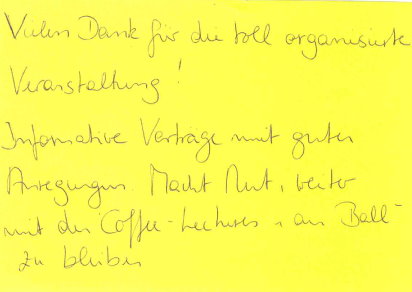 Vielen Dank für die toll organisierte
Veranstaltung!
Informative Vorträge mit guten
Anregungen. Macht Mut, weiter
mit den Coffee-Lectures „am Ball“
zu bleiben